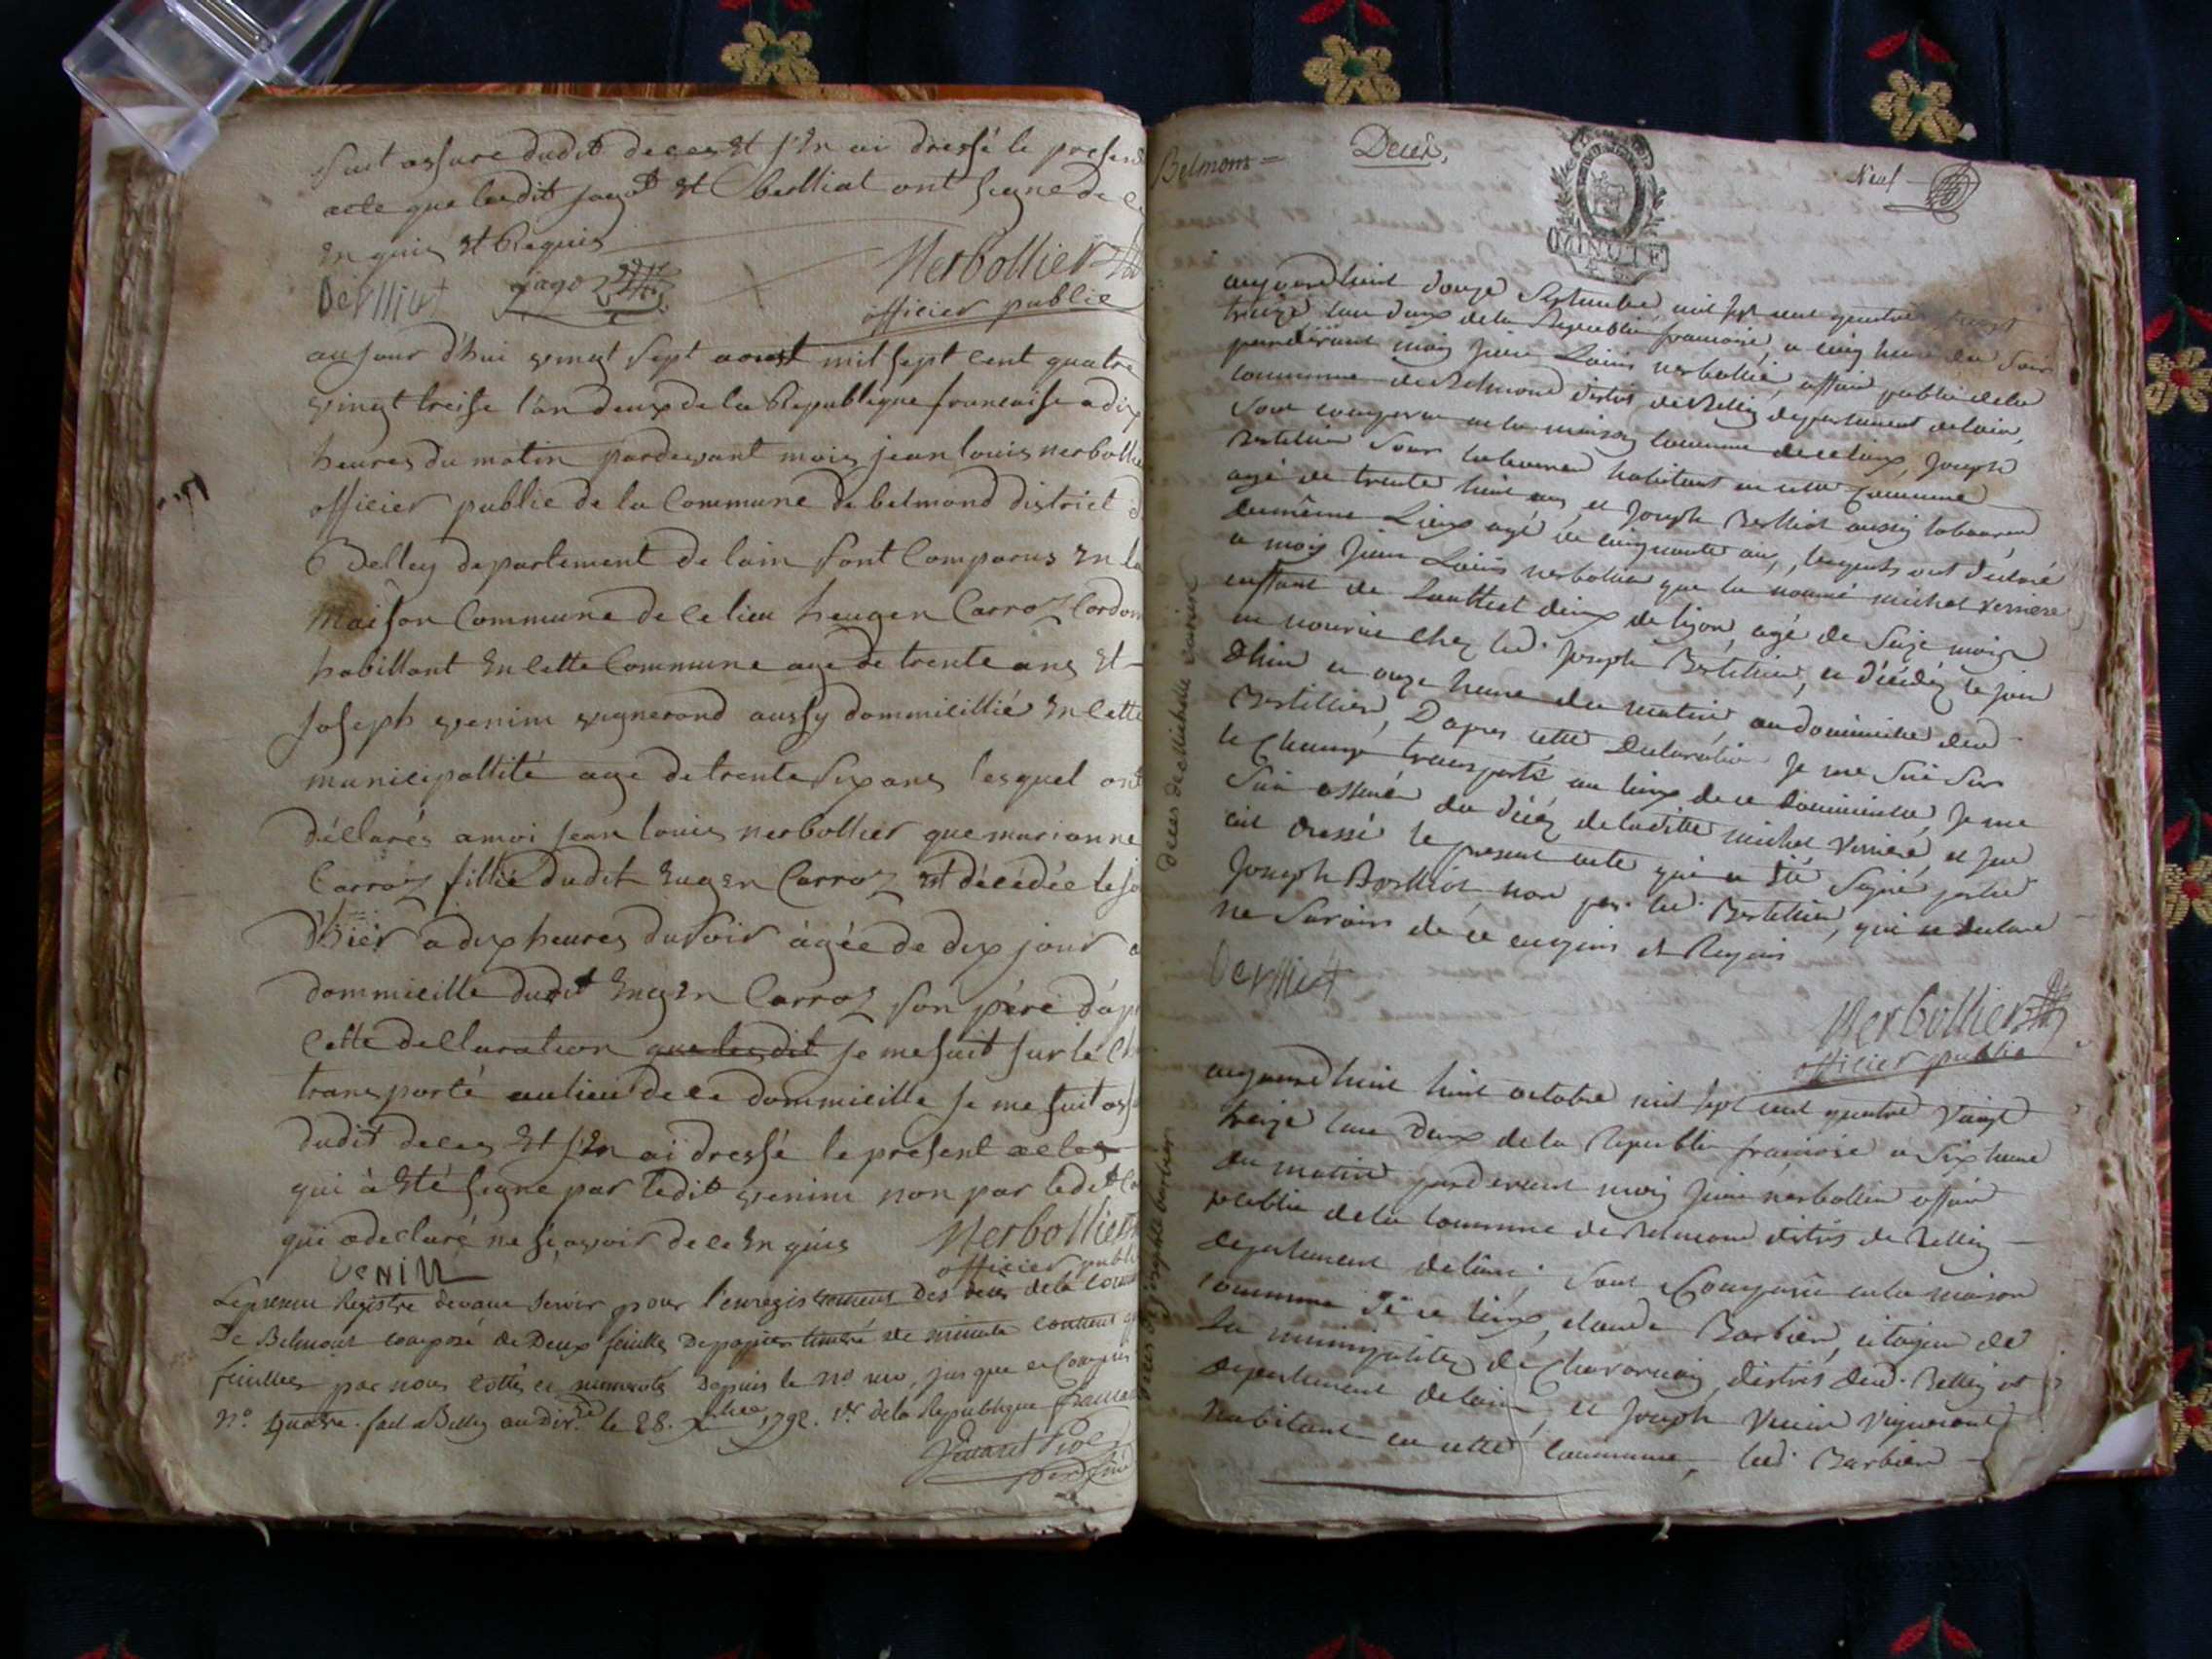 suit assure dudit deces Et j'En ai dressé le present
acte que ledit jagot Et berlliat ont signe de ce
En quis Et Requis
berlliat jago Nerbollier
officier public
aujour d'hui vingt sept aoust mil sept cent quatre
vingt treise l'an deux de la Republique francaise a dix
heures du matin pardevant mois jean louis nerbollier
officier public de la Commune de belmond district d
Belley departement de lain sont Comparus En la
Maison Commune de Ce lieu heugen Carroz Cordon
habittant En Cette Commune age de trente ans Et
joseph venim vigneron d aussy dommicillié En Cette
municipallité age de trente six ans lesquel ont
déClarés a moi jean louis nerbollier que marianne
Carroz fillie dudit Eugen Carroz Est décédée le jo
D'hier a dix heures du soir àgée de dix jour a
dommicille dudit Eugen Carroz son père d'ap
Cette decllaration que lesdit je me suit sur le Ch
transporté au lieu de Ce dommicille je me suit ass
dudit deces Et j'En ai dressé le present acte
qui à Eté signe par ledit venim non par ledit Ca
qui a declaré ne sçavoir de ce En quis Nerbollier
veNiM officier publi
Le present Registre devant servir pour l'enregistrement des deces de la comm
De Belmont composé de Deux feuilles De papier timbré de minute contient
feuillets par nous cottés et numerotés Depuis le no. un, jusque et Compris
No. quatre. fait a Belley au Dire. le 28. Xbre 1792. 1er de la Republique france
Belmont = Decès, Neuf
MINUTE
aujourdhuit douze Septembre mil sept cent quatre vingt
treize lan deux de la Republique francoise, a cinq heure du Soir
pardevant mois Jean Louis nerbollier, officier public de la
commune de Belmond district de Belley departement de lain,
Sont comparu en la maison commune de ce lieux, Joseph
Berthelier Sous laboureur habitant en cette Commune
agé de trente huit ans, et Joseph Berlliot aussy laboureur
du même Lieux agé de cinquante ans, lesquels ont declaré
a mois Jean Louis nerbollier que la nommé michel verriere
enffant de Lauttiet dieux de lyon, agé de Seize mois
en nourrice chez led. Joseph Bertelier, a décédéz le jour
Dhiere a onze heure du matin, au dommicile dud
Bertillier, D'apres cette Declaration Je me Suis Sur
le Champ transporté au lieux de ce dommicile, Je me
Suis assuré du décéz de ladite michel verriere, et Jen
ait dressé le present acte qui a été Signé par led
Joseph Berlliot, non par led. Bertelier, qui a declare
ne Savoir de ce enquis et Requis
berlliat
Nerbollier
officier public
deces de Michelle variere
aujourdhuit huit octobre mil sept cent quatre vingt
treize lan deux de la Republi francoise a six heure
du matin pardevant mois Jean nerbollier officier
public de la commune de Belmond district de Belley
departement de lain, Sont Comparu en la maison
commune de ce lieux, claude Barbier, citoyen de
La municipalitez de Chavornay district dud. Belley et
departement de lain, et Joseph Venin Vigneront
habitant en cette commune, led. Barbier
deces de josephte barbier